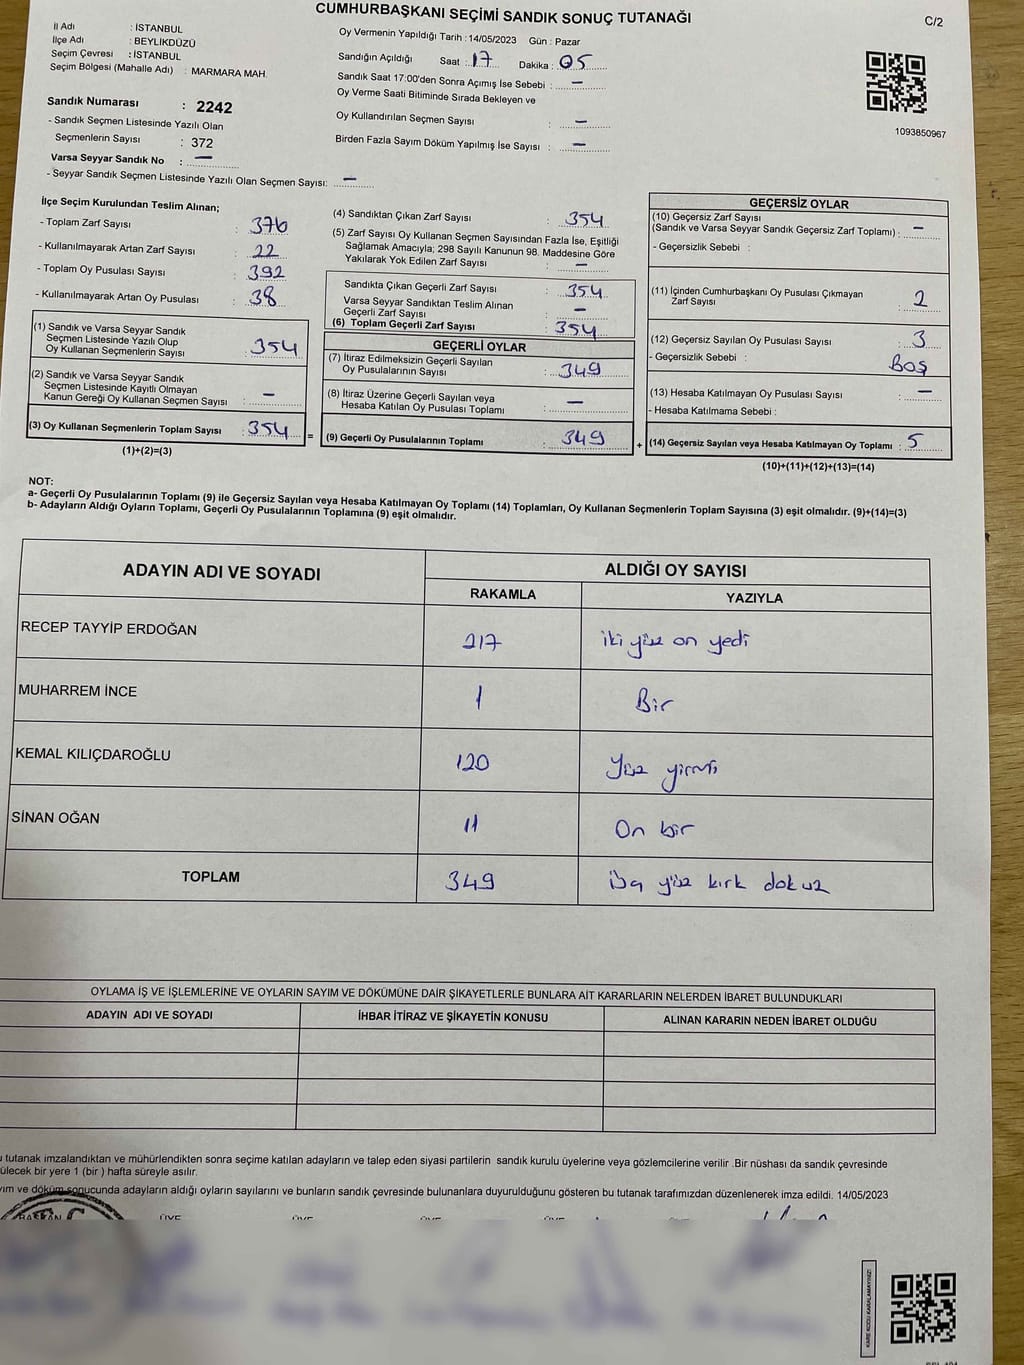 CUMHURBAŞKANI SEÇİMİ SANDIK SONUÇ TUTANAĞI
C/2
İl Adı : İSTANBUL
İlçe Adı : BEYLİKDÜZÜ
Seçim Çevresi : İSTANBUL
Seçim Bölgesi (Mahalle Adı) : MARMARA MAH.
Sandık Numarası : 2242
- Sandık Seçmen Listesinde Yazılı Olan
Seçmenlerin Sayısı : 372
Varsa Seyyar Sandık No : —
- Seyyar Sandık Seçmen Listesinde Yazılı Olan Seçmen Sayısı: —
Oy Vermenin Yapıldığı Tarih : 14/05/2023 Gün : Pazar
Sandığın Açıldığı Saat : 17 Dakika : 05
Sandık Saat 17:00'den Sonra Açımış İse Sebebi : —
Oy Verme Saati Bitiminde Sırada Bekleyen ve
Oy Kullandırılan Seçmen Sayısı : —
Birden Fazla Sayım Döküm Yapılmış İse Sayısı : —
1093850967
İlçe Seçim Kurulundan Teslim Alınan;
- Toplam Zarf Sayısı : 376
- Kullanılmayarak Artan Zarf Sayısı : 22
- Toplam Oy Pusulası Sayısı : 392
- Kullanılmayarak Artan Oy Pusulası : 38
(1) Sandık ve Varsa Seyyar Sandık
Seçmen Listesinde Yazılı Olup
Oy Kullanan Seçmenlerin Sayısı : 354
(2) Sandık ve Varsa Seyyar Sandık
Seçmen Listesinde Kayıtlı Olmayan
Kanun Gereği Oy Kullanan Seçmen Sayısı : —
(3) Oy Kullanan Seçmenlerin Toplam Sayısı : 354 =
(1)+(2)=(3)
(4) Sandıktan Çıkan Zarf Sayısı : 354
(5) Zarf Sayısı Oy Kullanan Seçmen Sayısından Fazla İse, Eşitliği
Sağlamak Amacıyla; 298 Sayılı Kanunun 98. Maddesine Göre
Yakılarak Yok Edilen Zarf Sayısı : —
Sandıkta Çıkan Geçerli Zarf Sayısı : 354
Varsa Seyyar Sandıktan Teslim Alınan
Geçerli Zarf Sayısı : —
(6) Toplam Geçerli Zarf Sayısı : 354
GEÇERLİ OYLAR
(7) İtiraz Edilmeksizin Geçerli Sayılan
Oy Pusulalarının Sayısı : 349
(8) İtiraz Üzerine Geçerli Sayılan veya
Hesaba Katılan Oy Pusulası Toplamı : —
(9) Geçerli Oy Pusulalarının Toplamı : 349 +
GEÇERSİZ OYLAR
(10) Geçersiz Zarf Sayısı
(Sandık ve Varsa Seyyar Sandık Geçersiz Zarf Toplamı) : —
- Geçersizlik Sebebi :
(11) İçinden Cumhurbaşkanı Oy Pusulası Çıkmayan
Zarf Sayısı : 2
(12) Geçersiz Sayılan Oy Pusulası Sayısı : 3
- Geçersizlik Sebebi : Boş
(13) Hesaba Katılmayan Oy Pusulası Sayısı : —
- Hesaba Katılmama Sebebi :
(14) Geçersiz Sayılan veya Hesaba Katılmayan Oy Toplamı : 5
(10)+(11)+(12)+(13)=(14)
NOT:
a- Geçerli Oy Pusulalarının Toplamı (9) ile Geçersiz Sayılan veya Hesaba Katılmayan Oy Toplamı (14) Toplamları, Oy Kullanan Seçmenlerin Toplam Sayısına (3) eşit olmalıdır. (9)+(14)=(3)
b- Adayların Aldığı Oyların Toplamı, Geçerli Oy Pusulalarının Toplamına (9) eşit olmalıdır.
ADAYIN ADI VE SOYADI
ALDIĞI OY SAYISI
RAKAMLA YAZIYLA
RECEP TAYYİP ERDOĞAN 217 iki yüz on yedi
MUHARREM İNCE 1 Bir
KEMAL KILIÇDAROĞLU 120 Yüz yirmi
SİNAN OĞAN 11 On bir
TOPLAM 349 üç yüz kırk dokuz
OYLAMA İŞ VE İŞLEMLERİNE VE OYLARIN SAYIM VE DÖKÜMÜNE DAİR ŞİKAYETLERLE BUNLARA AİT KARARLARIN NELERDEN İBARET BULUNDUKLARI
ADAYIN ADI VE SOYADI İHBAR İTİRAZ VE ŞİKAYETİN KONUSU ALINAN KARARIN NEDEN İBARET OLDUĞU
u tutanak imzalandıktan ve mühürlendikten sonra seçime katılan adayların ve talep eden siyasi partilerin sandık kurulu üyelerine veya gözlemcilerine verilir .Bir nüshası da sandık çevresinde
ülecek bir yere 1 (bir ) hafta süreyle asılır.
yım ve döküm sonucunda adayların aldığı oyların sayılarını ve bunların sandık çevresinde bulunanlara duyurulduğunu gösteren bu tutanak tarafımızdan düzenlenerek imza edildi. 14/05/2023
BAŞKAN ÜYE ÜYE ÜYE ÜYE
KARE KODU KARALAMAYINIZ!